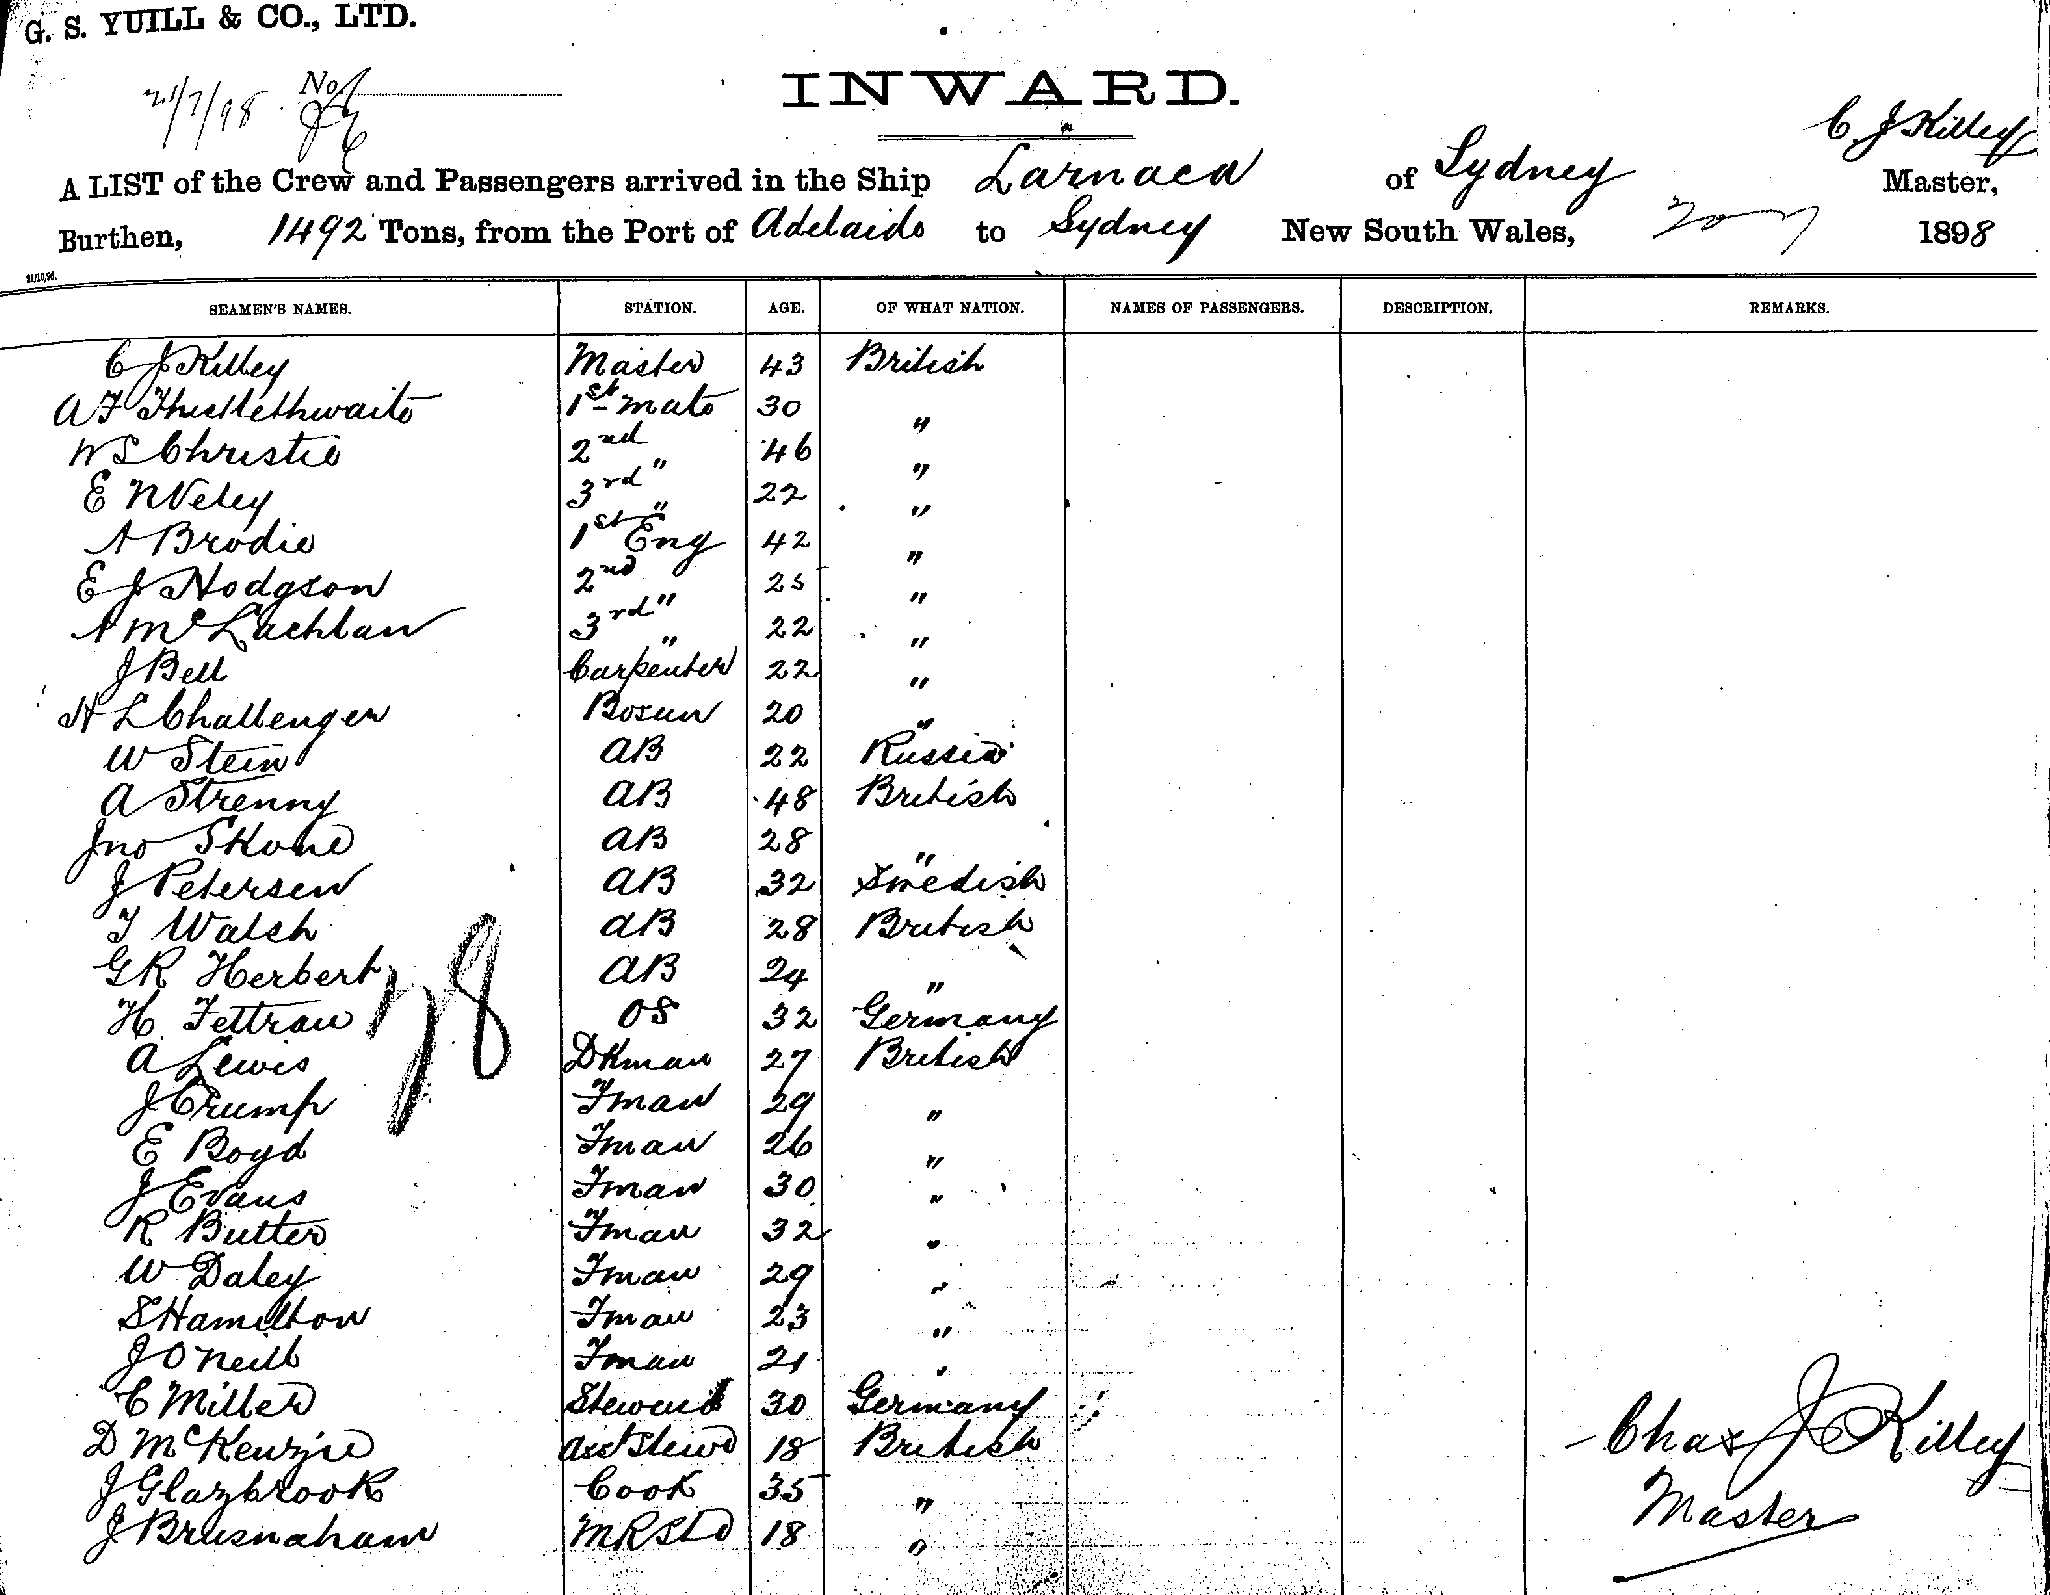 G. S. YUILL & CO., LTD.
INWARD.
21/7/98 No.
C J Killey
A LIST of the Crew and Passengers arrived in the Ship Larnaca of Sydney Master,
Burthen, 1492 Tons, from the Port of Adelaide to Sydney New South Wales, 1898
SEAMEN'S NAMES. STATION. AGE. OF WHAT NATION. NAMES OF PASSENGERS. DESCRIPTION. REMARKS.
C J Killey Master 43 British
A F Thistlethwaite 1st Mate 30 "
W S Christie 2nd " 46 "
E N Veley 3rd " 22 "
A Brodie 1st Eng 42 "
E J Hodgson 2nd " 25 "
A McLachlan 3rd " 22 "
J Bell Carpenter 22 "
H L Challenger Bosun 20 "
W Stein AB 22 Russia
A Strenny AB 48 British
Jno Skone AB 28 "
J Petersen AB 32 Swedish
T Walsh AB 28 British
G R Herbert AB 24 "
H Fettrau OS 32 Germany
A Lewis DKman 27 British
J Crump Fman 29 "
E Boyd Fman 26 "
J Evans Fman 30 "
R Butter Fman 32 "
W Daley Fman 29 "
S Hamilton Fman 23 "
J O'Neill Fman 21 "
C Miller Steward 30 Germany
D McKenzie Asst Stewd 18 British
J Glazbrook Cook 35 "
J Brusnaham MRStd 18 "
Chas J Killey
Master